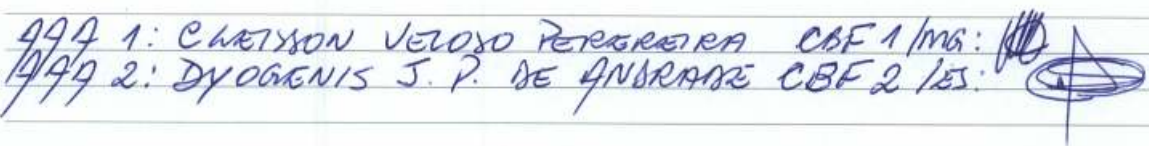 AAA 1: CLEISSON VELOSO PEREREIRA CBF 1/MG:
AAA 2: DYOGENIS J. P. DE ANDRADE CBF 2/ES: